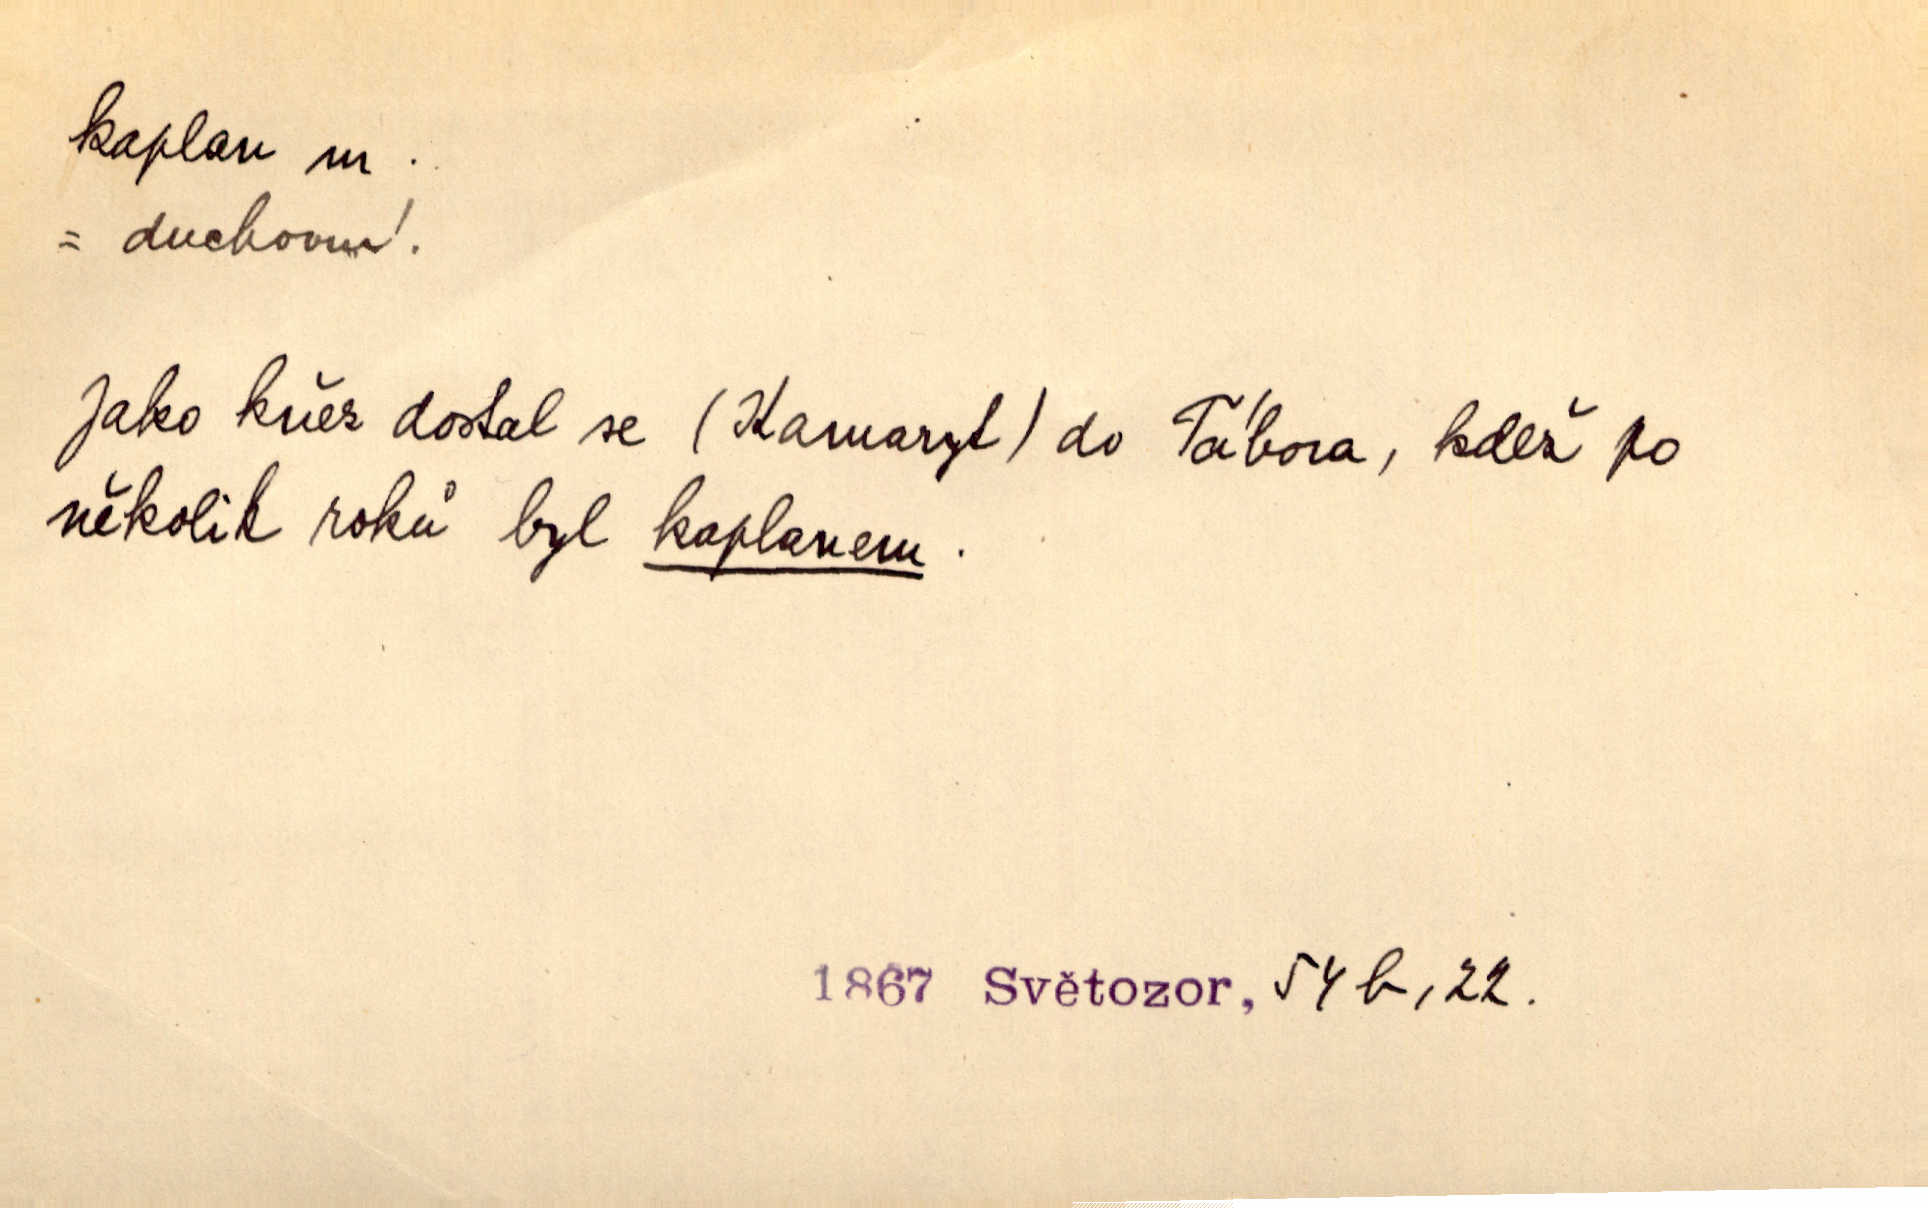 kaplan m.
= duchovní.
Jako kněz dostal se (Kamaryt) do Tábora, kdež po
několik roků byl kaplanem.
1867 Světozor, 54 b, 22.